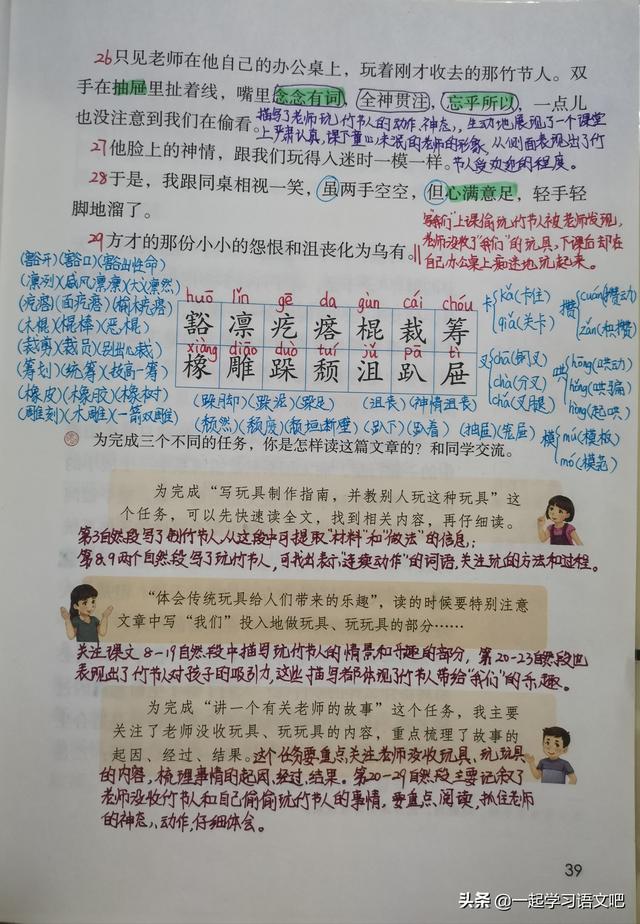 26只见老师在他自己的办公桌上，玩着刚才收去的那竹节人。双
手在抽屉里扯着线，嘴里念念有词，全神贯注，忘乎所以，一点儿
也没注意到我们在偷看。
描写了老师玩竹节人的动作、神态，生动地展现了一个课堂
上严肃认真，课下童心未泯的老师的形象，从侧面表现出了竹
节人受欢迎的程度。
27他脸上的神情，跟我们玩得入迷时一模一样。
28于是，我跟同桌相视一笑，虽两手空空，但心满意足，轻手轻
脚地溜了。
29方才的那份小小的怨恨和沮丧化为乌有。
写"我们"上课偷玩竹节人被老师发现，
老师没收了"我们"的玩具，下课后却在
自己办公桌上痴迷地玩起来。
(豁开)(豁口)(豁出性命)
(凛冽)(威风凛凛)(大义凛然)
(疙瘩)(面疙瘩)(榆木疙瘩)
(木棍)(棍棒)(恶棍)
(裁剪)(裁员)(别出心裁)
(筹划)(统筹)(技高一筹)
(橡皮)(橡胶)(橡树)
(雕刻)(木雕)(一箭双雕)
huō lǐn gē da gùn cái chóu
豁 凛 疙 瘩 棍 裁 筹
xiàng diāo duò tuí jǔ pā tì
橡 雕 跺 颓 沮 趴 屉
(跺脚)(跺泥)(跺足) (沮丧)(神情沮丧)
(颓然)(颓废)(颓垣断壁) (趴下)(趴着) (抽屉)(笼屉)
卡 kǎ(卡住)
qiǎ(关卡)
攒 cuán(攒动)
zǎn(积攒)
叉 chā(钢叉)
chà(分叉)
chǎ(叉腿)
哄 hōng(哄动)
hǒng(哄骗)
hòng(起哄)
模 mú(模板)
mó(模范)
为完成三个不同的任务，你是怎样读这篇文章的？和同学交流。
为完成“写玩具制作指南，并教别人玩这种玩具”这
个任务，可以先快速读全文，找到相关内容，再仔细读。
第3自然段写了制竹节人，从这段中可提取"材料"和"做法"的信息；
第8、9两个自然段写了玩竹节人，可找出表示"连续动作"的词语，关注玩的方法和过程。
“体会传统玩具给人们带来的乐趣”，读的时候要特别注意
文章中写“我们”投入地做玩具、玩玩具的部分……
关注课文8-19自然段中描写玩竹节人的情景和乐趣的部分，第20-23自然段也
表现出了竹节人对孩子的吸引力，这些描写都体现了竹节人带给"我们"的乐趣。
为完成“讲一个有关老师的故事”这个任务，我主要
关注了老师没收玩具、玩玩具的内容，重点梳理了故事的
起因、经过、结果。
这个任务要重点关注老师没收玩具、玩玩具
的内容，梳理事情的起因、经过、结果。第20-29自然段主要记叙了
老师没收竹节人和自己偷偷玩竹节人的事情，要重点阅读，抓住老师
的神态、动作，仔细体会。
39
头条 @一起学习语文吧